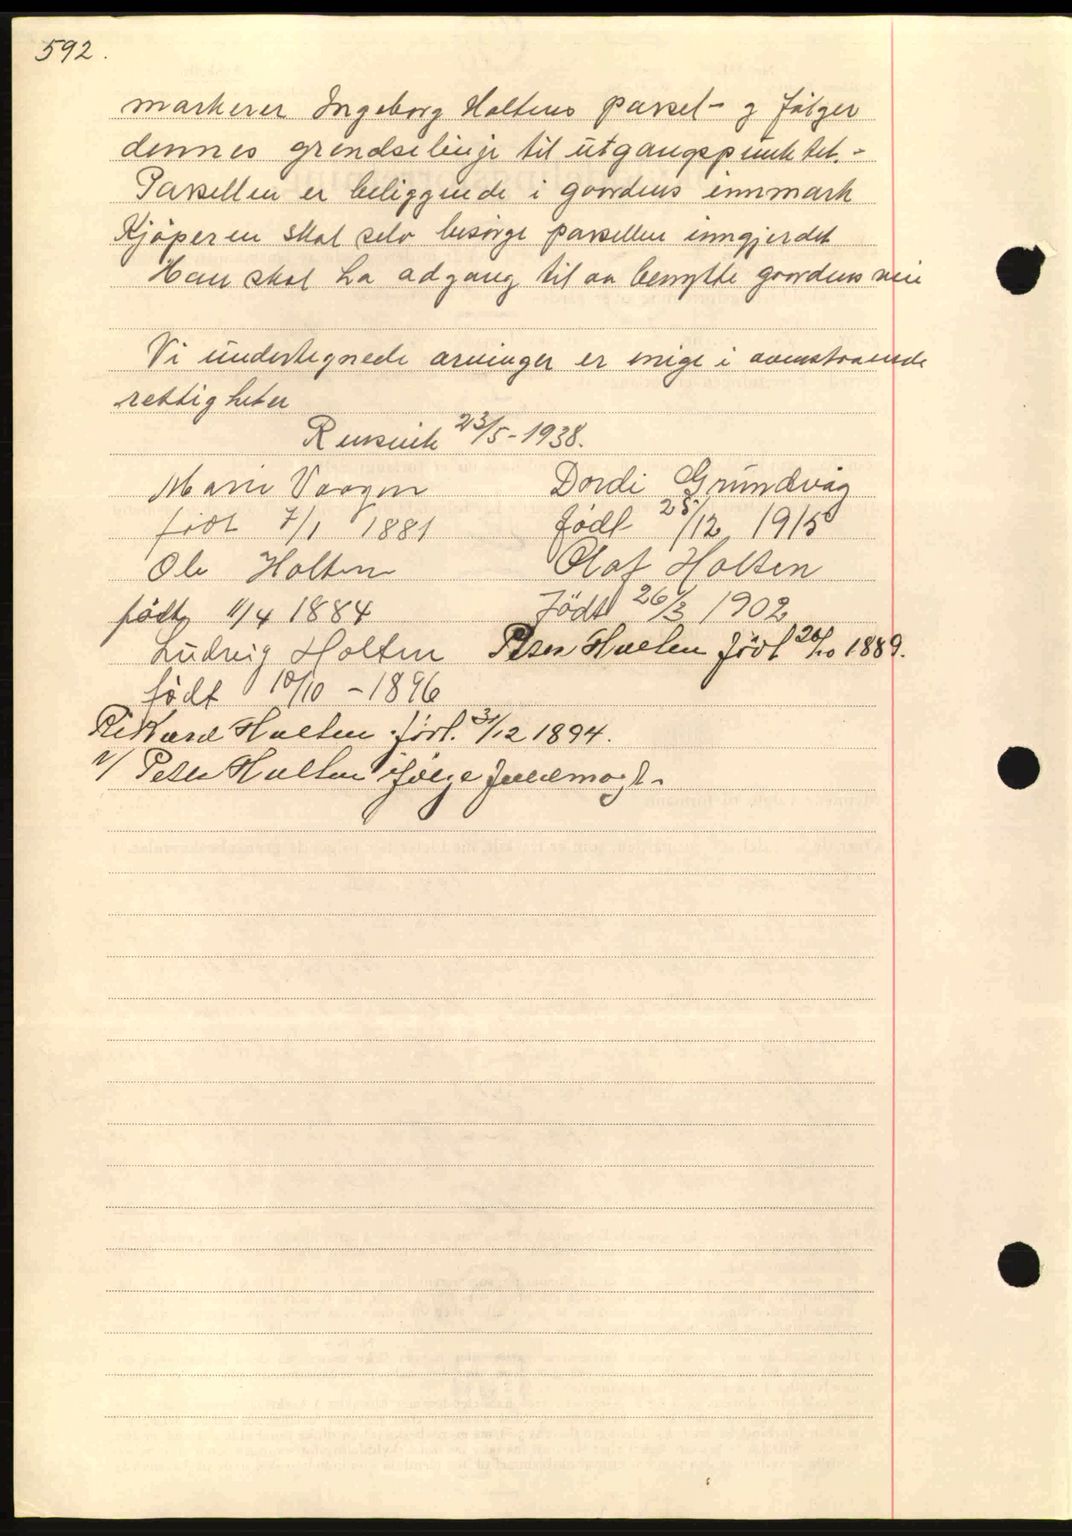 592.
markerer Ingeborg Holtens parsel - g følger
dennes grendselinje til utgangspunktet. -
Parsellen er beliggende i gaardens innmark
Kjøperen skal selv besørge parsellen inngjerdet
Han skal ha adgang til aa benytte gaardens vei
Vi undertegnede arvinger er enige i ovenstaaende
rettigheter
23/5 - 1938.
Marie Vaagen
født 7/1 1881
Dordi Grundvåg
født 25/12 1915
Ole Holten
født 11/4 1884
Olaf Holten
Født 26/3 1902
Ludvig Holten
født 10/10 - 1896
Peter Holten født 20/10 1889.
Rikard Holten født. 31/12 1894.
v/ Peter Holten ifølge fuldmagt -